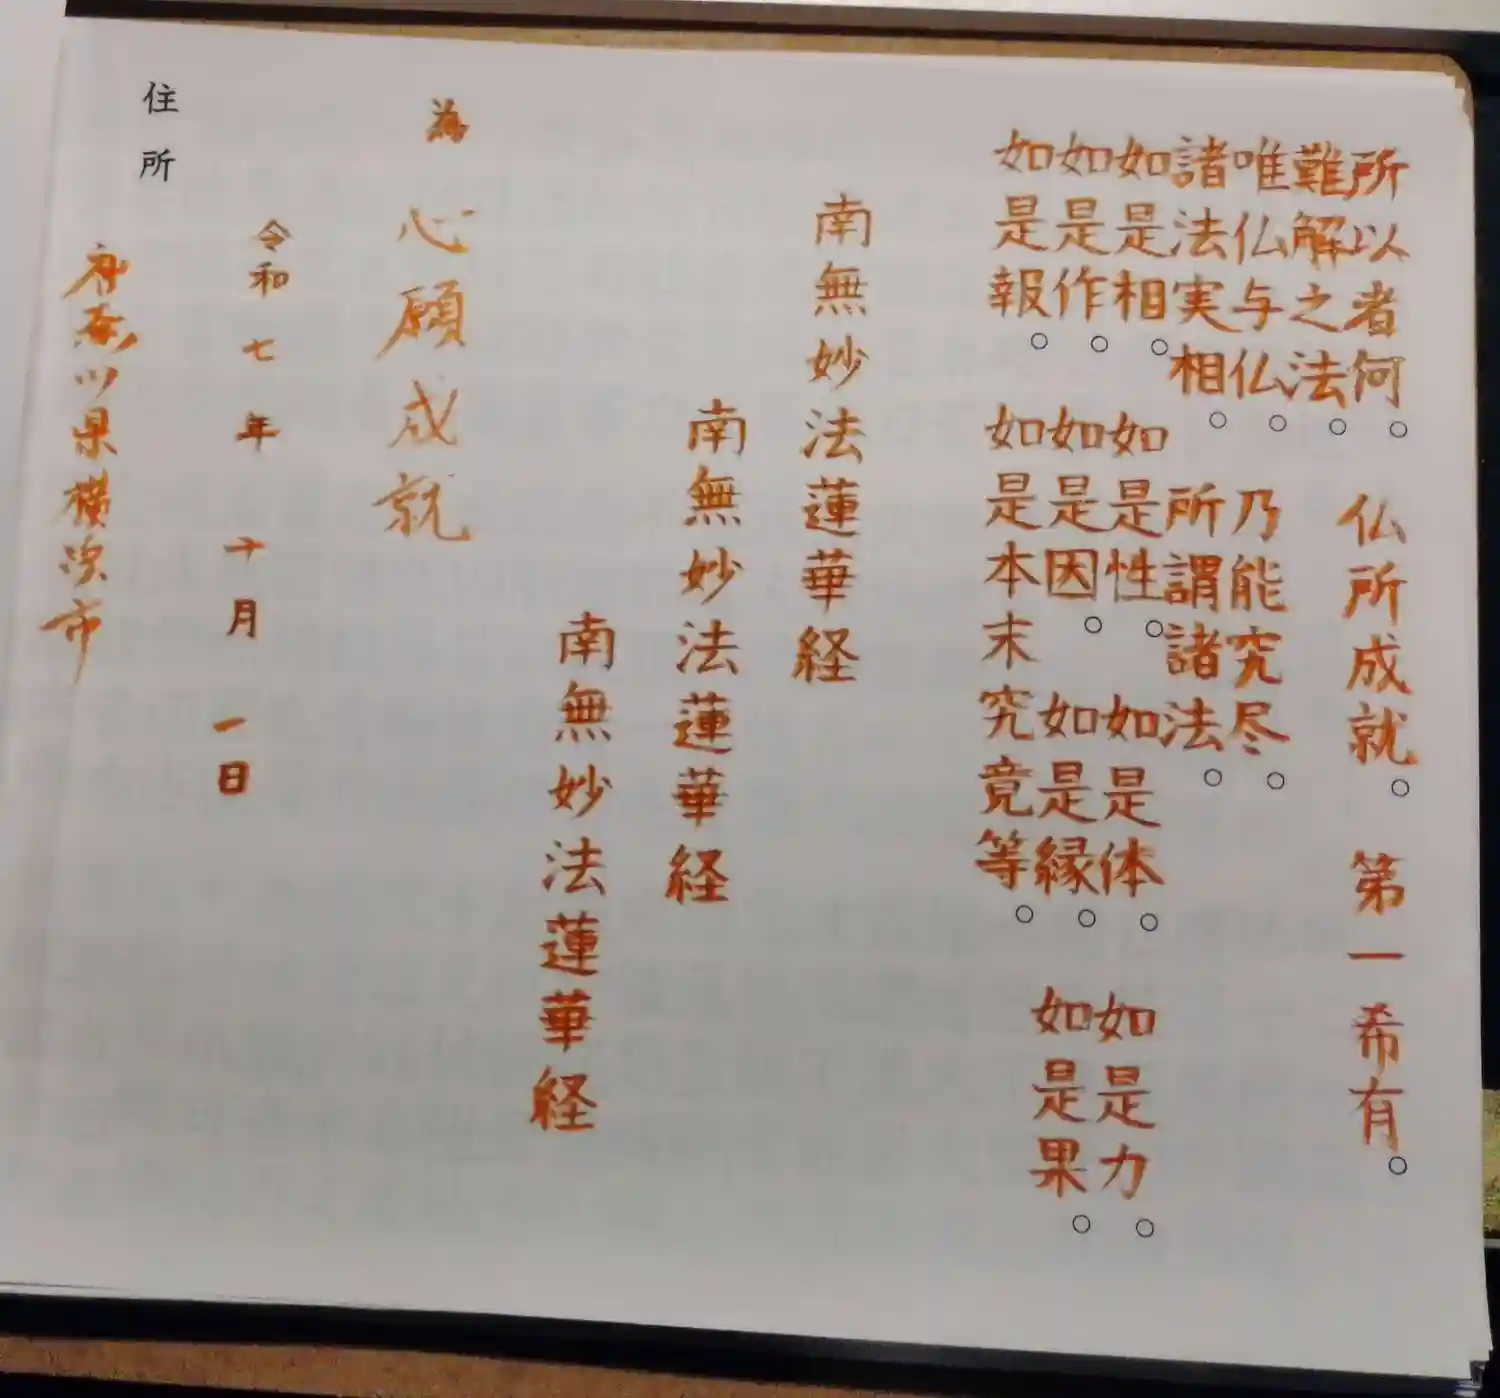 所以者何。仏所成就。第一希有。
難解之法。
唯仏与仏。乃能究尽。
諸法実相。所謂諸法。
如是相。如是性。如是体。如是力。
如是作。如是因。如是縁。如是果。
如是報。如是本末究竟等。
南無妙法蓮華経
南無妙法蓮華経
南無妙法蓮華経
為 心願成就
令和七年十月一日
住所 神奈川県横浜市